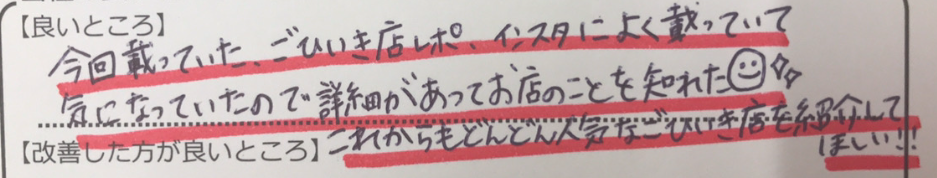 【良いところ】
今回載っていた、ごひいき店レポ、インスタによく載っていて
気になっていたので詳細があってお店のことを知れた
これからもどんどん人気なごひいき店を紹介して
ほしい!!
【改善した方が良いところ】